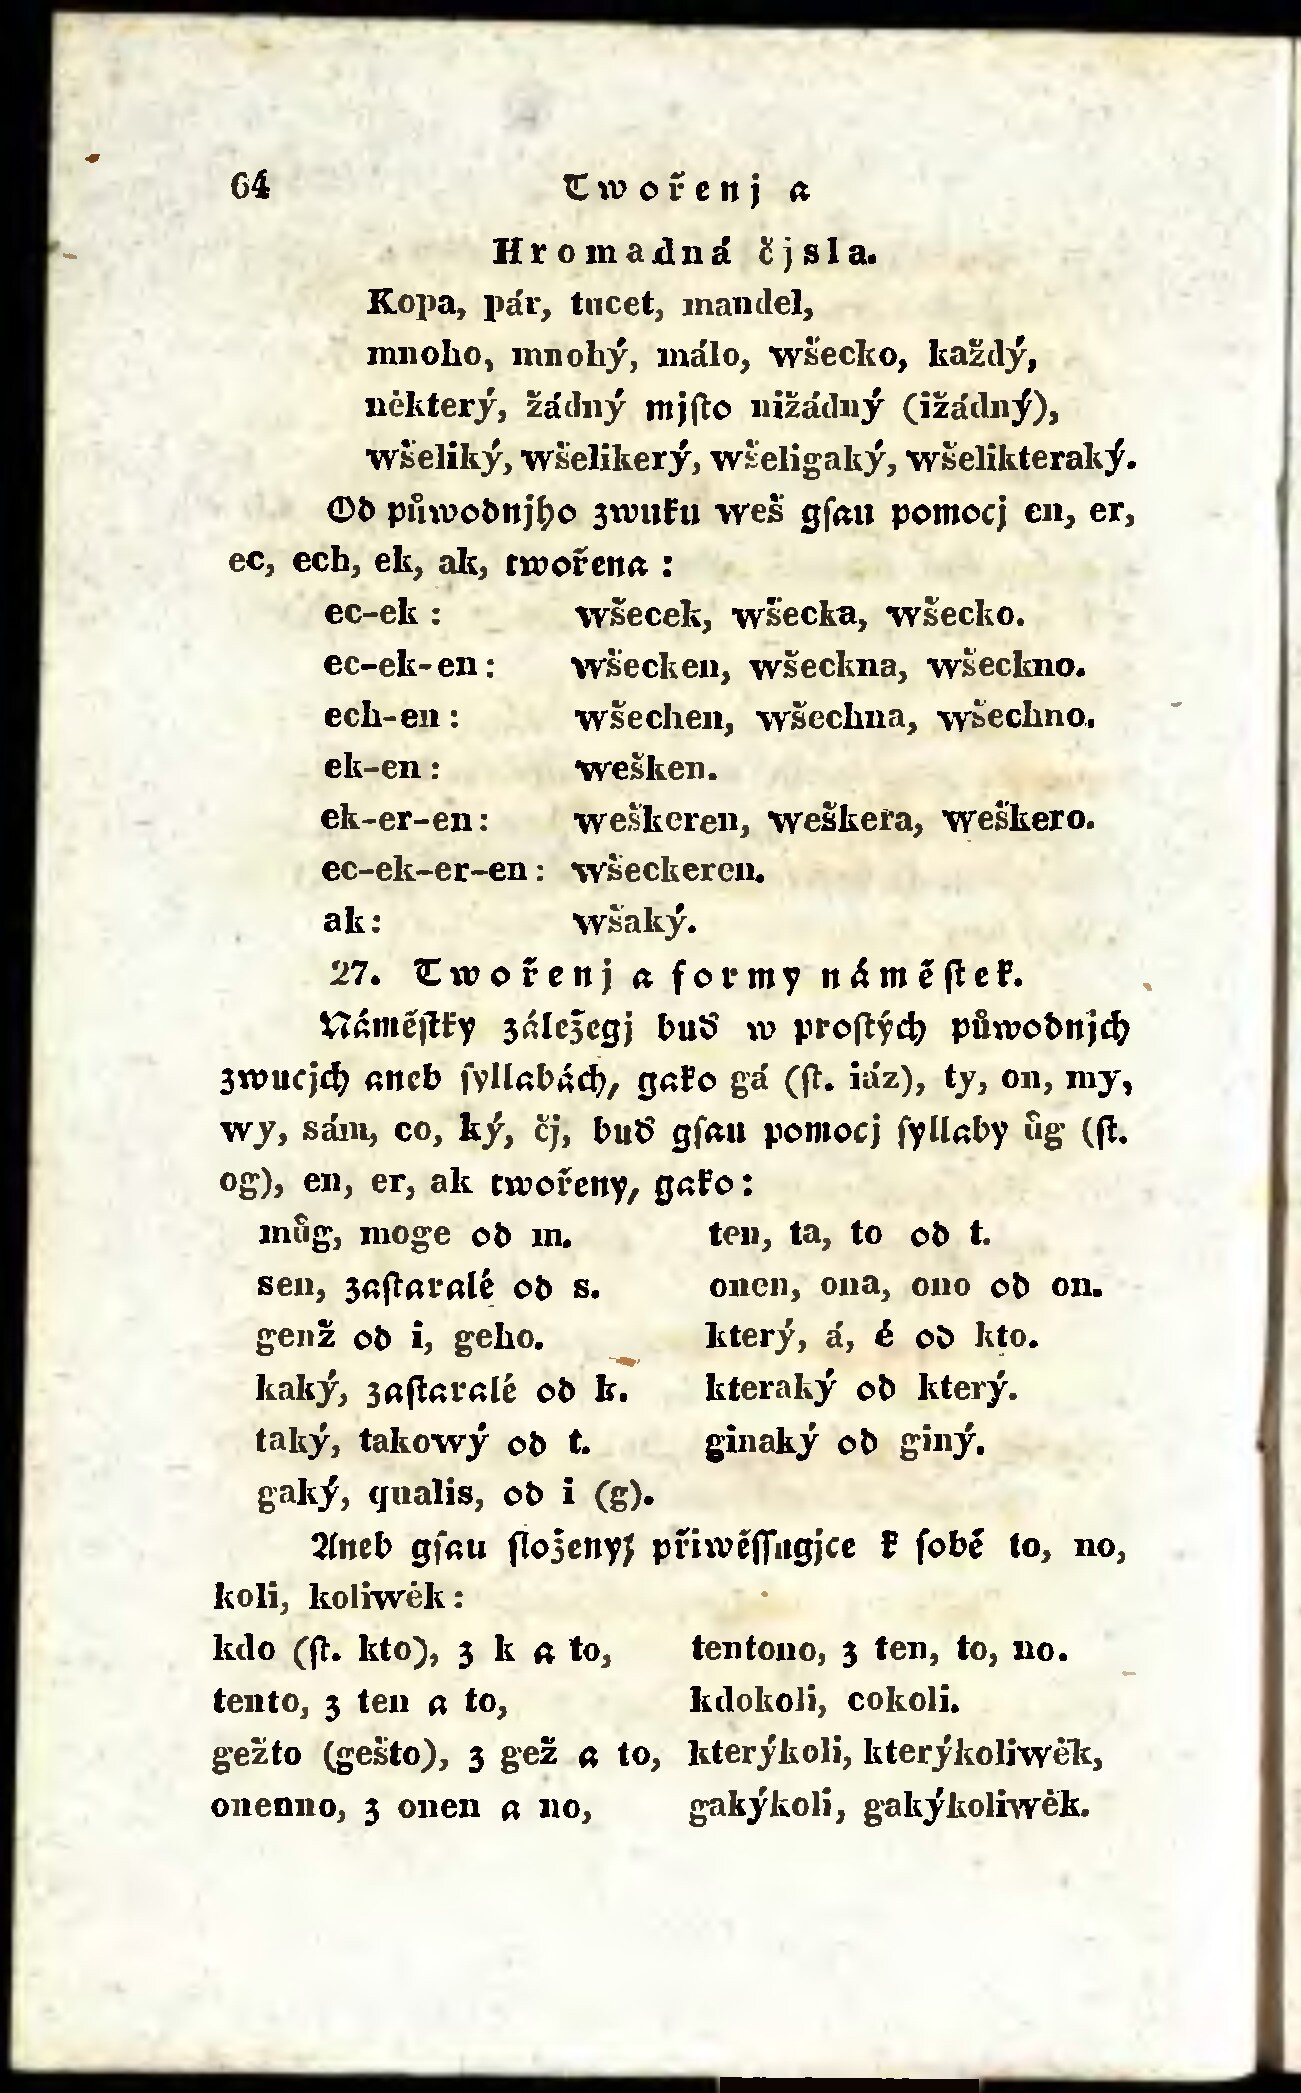 64 Twořenj a
Hromadná čjsla.
Kopa, pár, tucet, mandel,
mnoho, mnohý, málo, wšecko, každý,
některý, žádný mjſto nižádný (ižádný),
wšeliký, wšelikerý, wšeligaký, wšelikteraký.
Od půwodnjho zwuku weš gſau pomocj en, er,
ec, ech, ek, ak, twořena :
ec-ek : wšecek, wšecka, wšecko.
ec-ek-en : wšecken, wšeckna, wšeckno.
ech-en : wšechen, wšechna, wšechno.
ek-en : wešken.
ek-er-en : weškeren, weškera, weškero.
ec-ek-er-en : wšeckeren.
ak : wšaký.
27. Twořenj a formy náměſtek.
Náměſtky záležegj buď w proſtých půwodnjch
zwucjch aneb ſyllabách, gako gá (ſt. iáz), ty, on, my,
wy, sám, co, ký, čj, buď gſau pomocj ſyllaby ůg (ſt.
og), en, er, ak twořeny, gako :
můg, moge od m. ten, ta, to od t.
sen, zaſtaralé od s. onen, ona, ono od on.
genž od i, geho. který, á, é od kto.
kaký, zaſtaralé od k. kteraký od který.
taký, takowý od t. ginaký od giný.
gaký, qualis, od i (g).
Aneb gſau ſloženy, přiwěſſugjce k ſobě to, no,
koli, koliwěk :
kdo (ſt. kto), z k a to, tentono, z ten, to, no.
tento, z ten a to, kdokoli, cokoli.
gežto (gešto), z gež a to, kterýkoli, kterýkoliwěk,
onenno, z onen a no, gakýkoli, gakýkoliwěk.